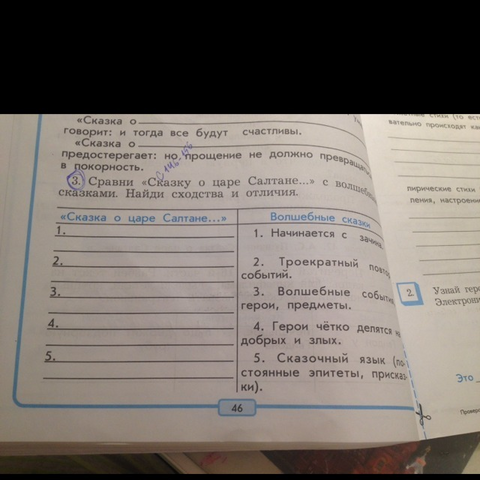 «Сказка о
говорит: и тогда все будут счастливы.
«Сказка о
предостерегает: но прощение не должно
в покорность.
3. Сравни «Сказку о царе Салтане...» с
сказками. Найди сходства и отличия.
«Сказка о царе Салтане...»
1.
2.
3.
4.
5.
Волшебные сказки
1. Начинается с
2. Троекратный
событий.
3. Волшебные
герои, предметы.
4. Герои чётко делятся
добрых и злых.
5. Сказочный язык (по-
стоянные эпитеты, присказ-
ки).
46
стихи (то
происходят
лирические стихи
ления,
2. Узнай
Это